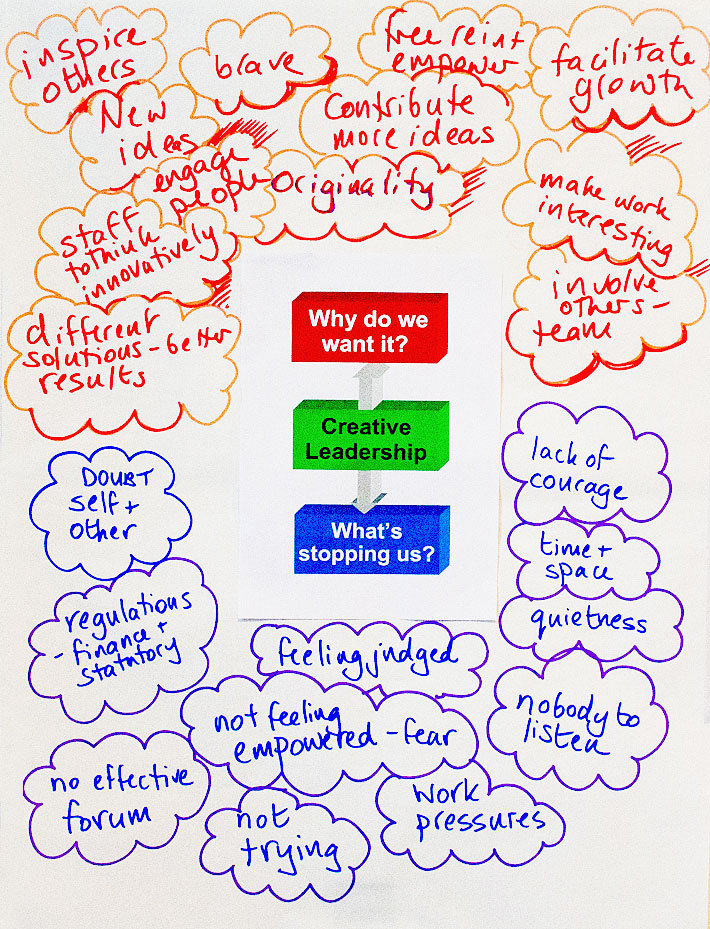 inspire
others
brave
free rein +
empower
facilitate
growth
New
ideas
Contribute
more ideas
engage
people
Originality
make work
interesting
staff
to think
innovatively
involve
others -
team
different
solutions - better
results
Why do we
want it?
Creative
Leadership
What's
stopping us?
DOUBT
self +
other
lack of
courage
time +
space
regulations
- finance +
statutory
quietness
feeling judged
not feeling
empowered - fear
nobody to
listen
no effective
forum
not
trying
Work
pressures